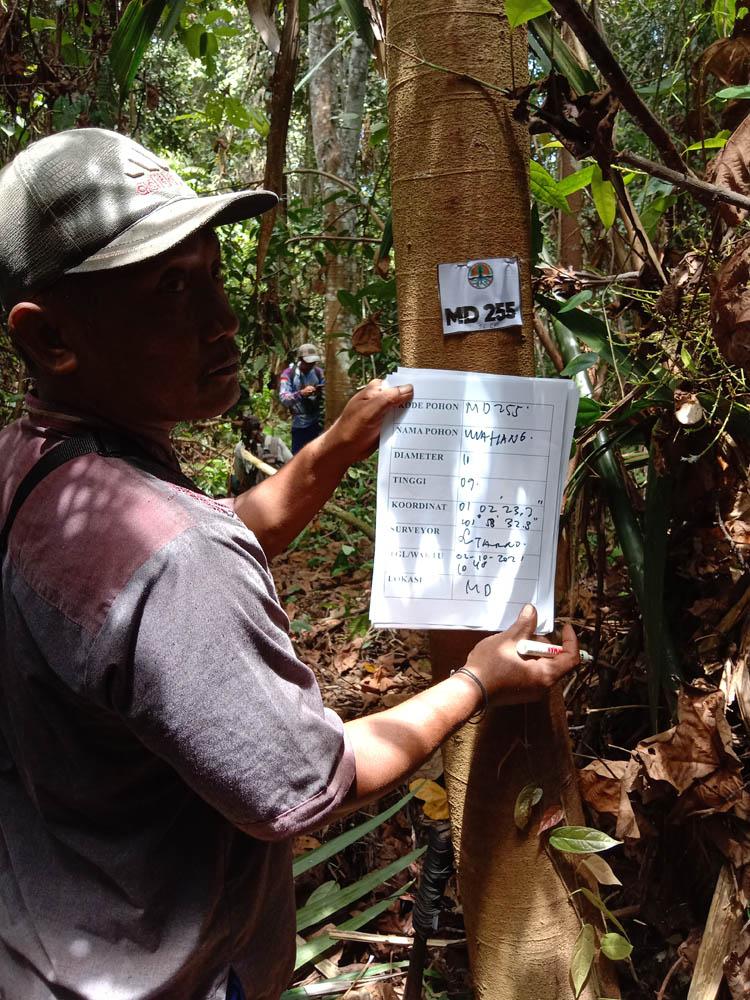 MD 255
KODE POHON MD255.
NAMA POHON WAHANG.
DIAMETER 11
TINGGI 09.
KOORDINAT 01 02' 23,7"
101° 58' 32.8"
SURVEYOR
TGL/WAKTU 02-10-2021
10 48
LOKASI MD